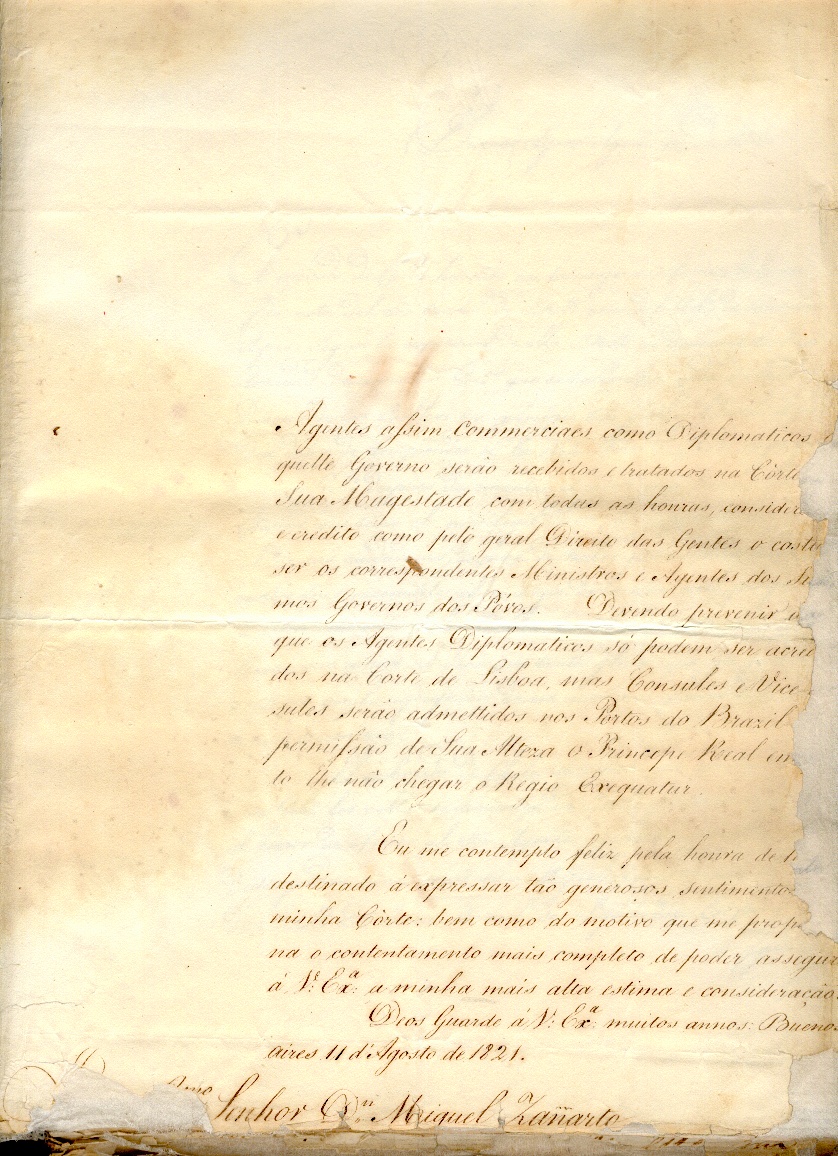 Agentes assim Commerciaes como Diplomaticos
quelle Governo serão recebidos e tratados na Côrte
Sua Magestade com todas as honras, consider
e credito como pelo geral Direito das Gentes o costu
ser os correspondentes Ministros e Agentes dos
mos Governos dos Póvos. Devendo prevenir
que os Agentes Diplomaticos só podem ser acre
dos na Corte de Lisboa, mas Consules e Vice
sules serão admettidos nos Portos do Brazil
permissão de Sua Alteza o Principe Real em
to lhe não chegar o Regio Exequatur.
Eu me contemplo feliz pela honra de t
destinado á expressar tão generosos sentimento
minha Côrte: bem como do motivo que me propo
na o contentamento mais completo de poder assegur
á V.ª Ex.ª a minha mais alta estima e consideração
Deos Guarde á V.ª Ex.ª muitos annos: Buenos
aires 11 d'Agosto de 1821.
Senhor D.n Miguel Zañarto